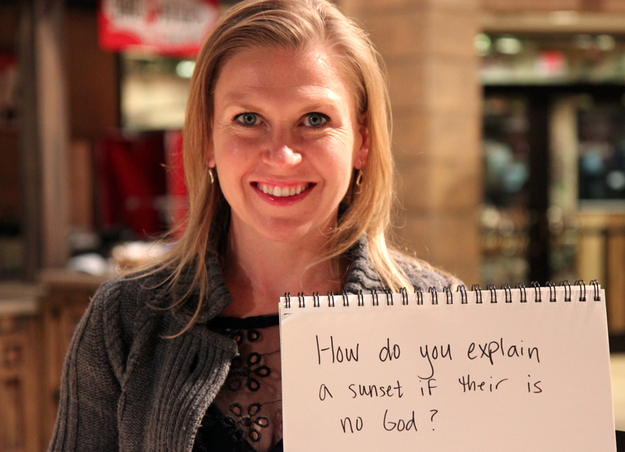 How do you explain
a sunset if their is
no God?